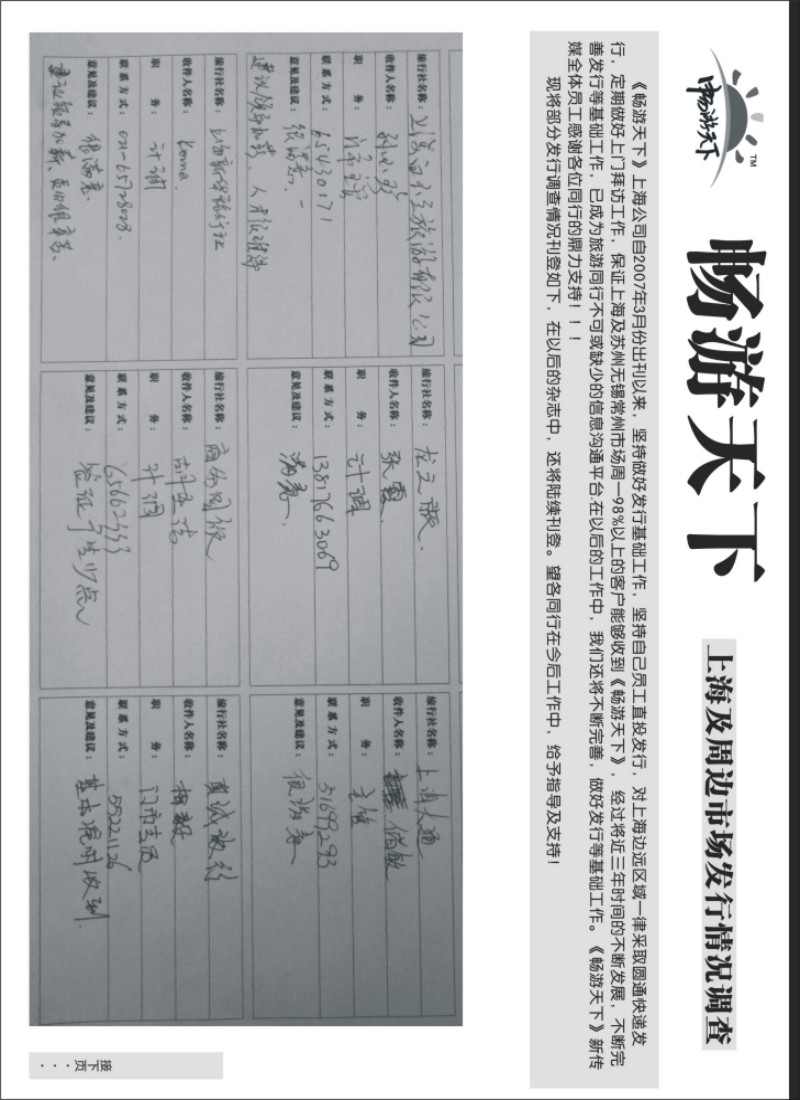 畅游天下
TM
畅游天下
上海及周边市场发行情况调查
《畅游天下》上海公司自2007年3月份出刊以来，坚持做好发行基础工作，坚持自己员工直投发行，对上海边远区域一律采取圆通快递发
行，定期做好上门拜访工作，保证上海及苏州无锡常州市场周一98%以上的客户能够收到《畅游天下》，经过将近三年时间的不断发展，不断完
善发行等基础工作，已成为旅游同行不可或缺少的信息沟通平台.在以后的工作中，我们还将不断完善，做好发行等基础工作。《畅游天下》新传
媒全体员工感谢各位同行的鼎力支持！！！
现将部分发行调查情况刊登如下，在以后的杂志中，还将陆续刊登。望各同行在今后工作中，给予指导及支持！
旅行社名称：
收件人名称：
职 务：
联系方式：65430171
意见及建议：很满意、
旅行社名称：
收件人名称：张霞
职 务：计调
联系方式：13817663069
意见及建议：满意
旅行社名称：上海大通
收件人名称：
职 务：
联系方式：51699293
意见及建议：很满意
旅行社名称：
收件人名称：
职 务：计调
联系方式：021-65728023.
意见及建议：很满意.
旅行社名称：商务国旅
收件人名称：
职 务：计调
联系方式：65662333
意见及建议：签证
旅行社名称：真诚旅行
收件人名称：
职 务：门市
联系方式：55221126
意见及建议：基本准时收到.
接下页
···